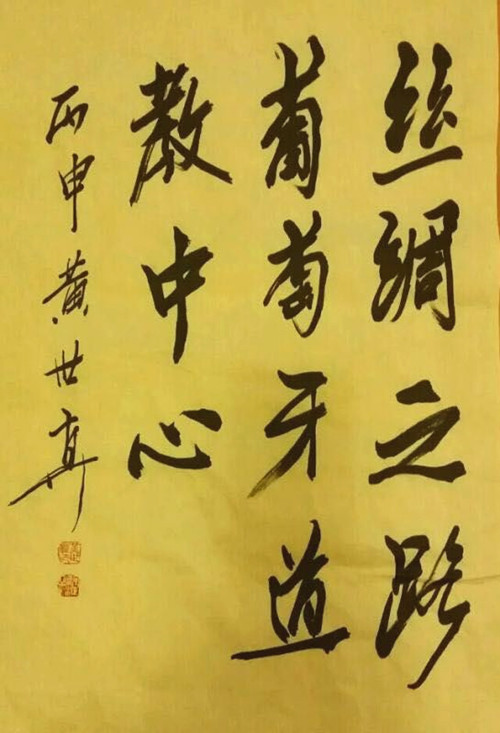 丝綢之路
葡萄牙道
教中心
丙申黄世真